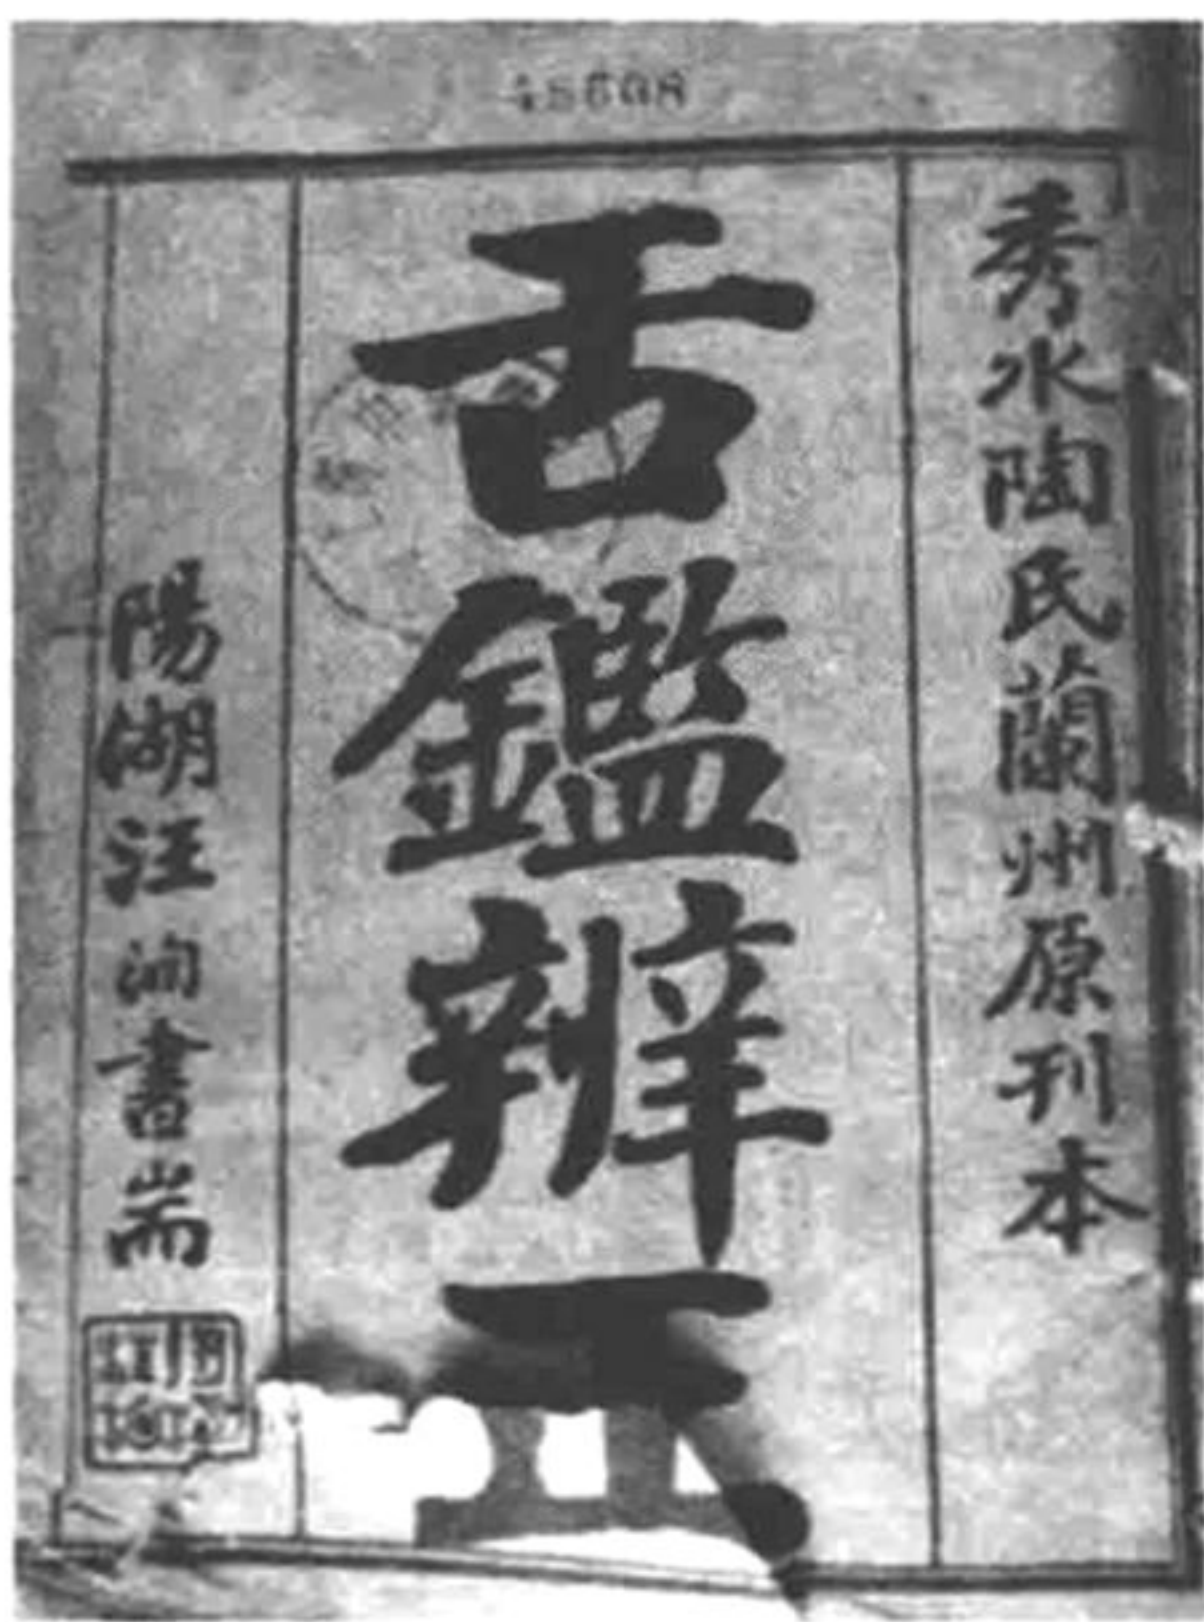 秀水陶氏蘭州原刊本
舌鑑辨正
陽湖汪洵書耑